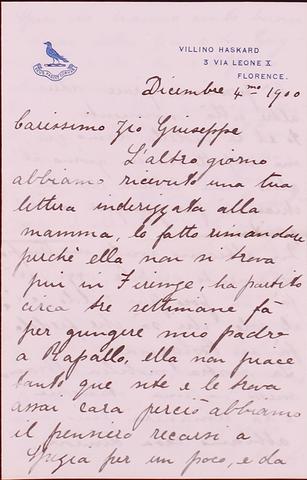 VILLINO HASKARD
3 VIA LEONE X
FLORENCE.
Dicembre 4mo 1900
Carissimo Zio Giuseppe
L'altro giorno
abbiamo ricevuto una tua
lettera inderizzata alla
mamma, lo fatto rimandare
perchè ella non si trova
piu in Firenze, ha partito
circa tre settimane fà
per giungere mio padre
a Rapallo, ella non piace
tanto que site e le trova
assai cara perciò abbiamo
il pensiero recarsi a
Spezia per un poco, e da